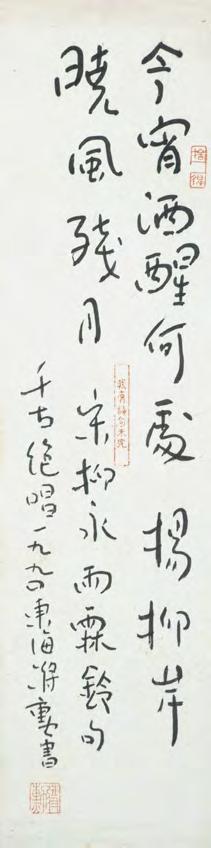 今宵酒醒何處 楊柳岸
曉風殘月 宋柳永雨霖鈴句
千古絶唱一九九〇東海蔣勳書
捨得